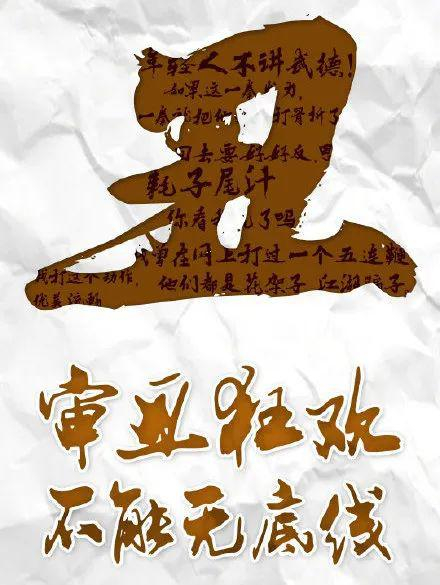 丑
年轻人不讲武德!
如果这一拳
一拳就把他 打骨折了
回去要好好反思
耗子尾汁
你看 了吗
我曾在网上打过一个五连鞭
我打这个动作, 他们都是花架子 江湖骗子,
优美流畅
审丑狂欢
不能无底线